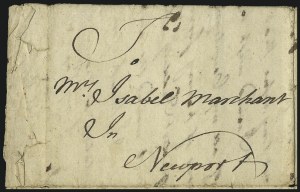 To
Mrs Isabel Marchant
In
Newport